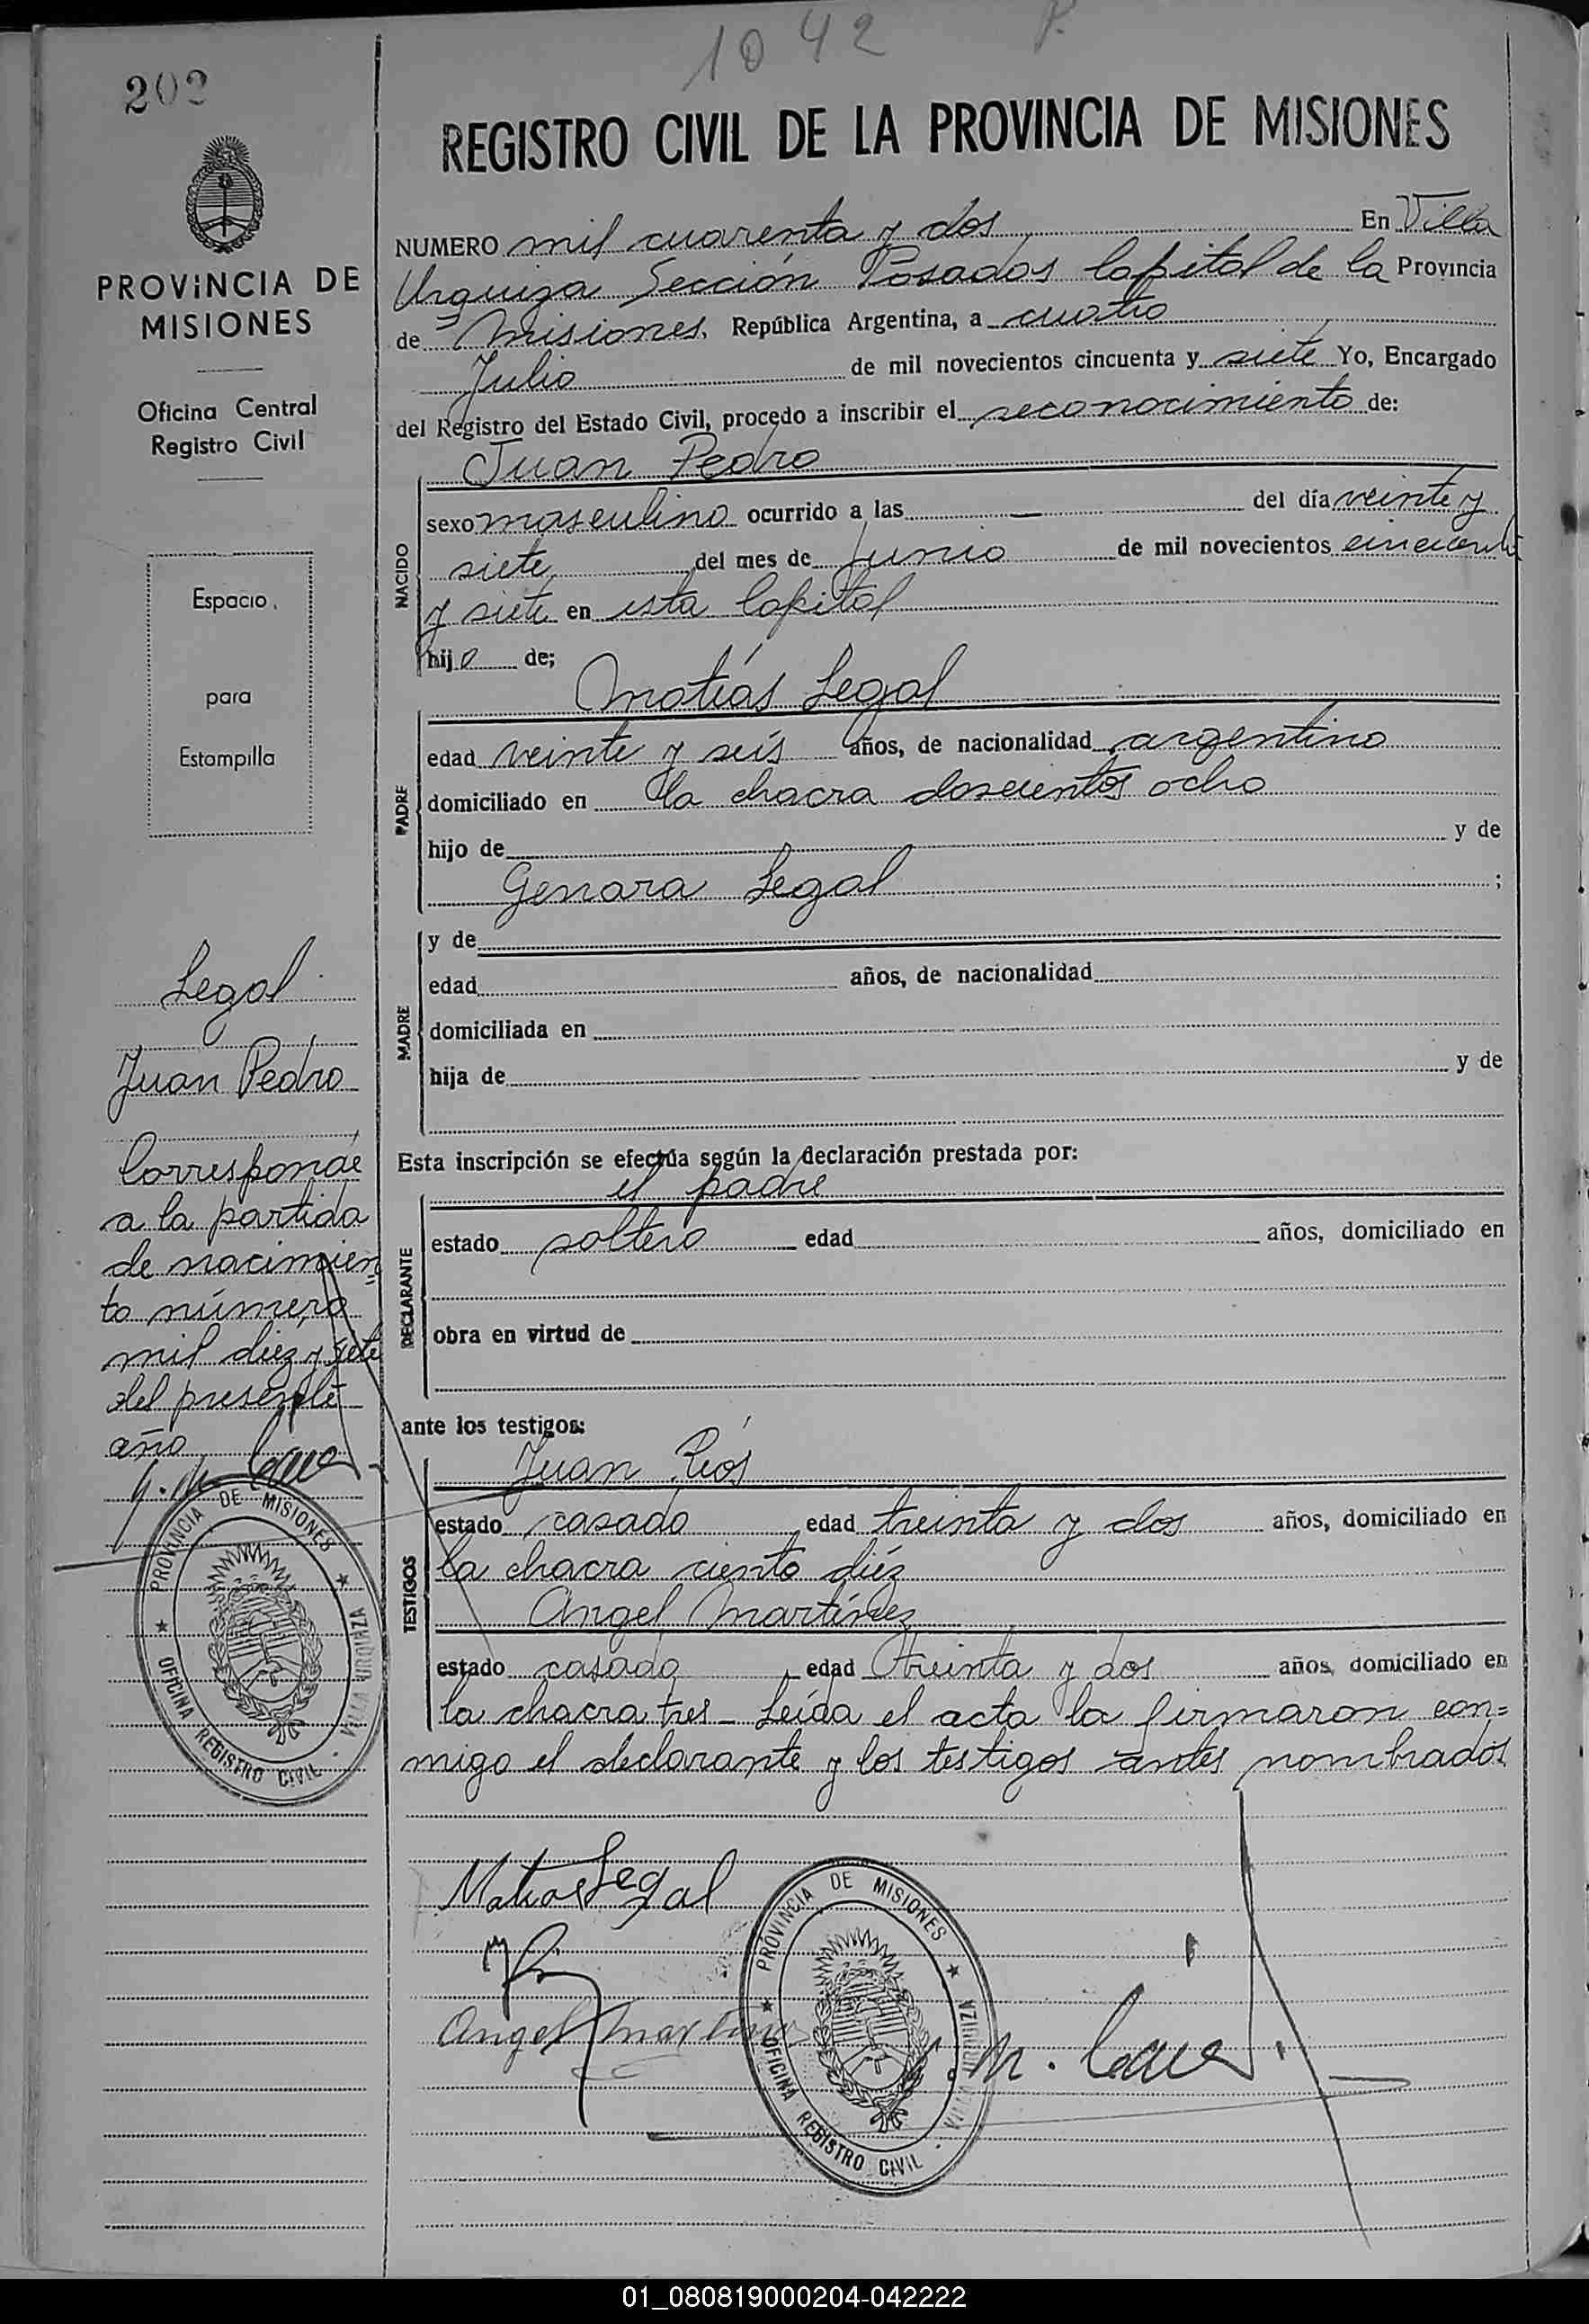 1042 P.
202
REGISTRO CIVIL DE LA PROVINCIA DE MISIONES
PROVINCIA DE
MISIONES
Oficina Central
Registro Civil
Espacio
para
Estampilla
NUMERO mil cuarenta y dos En Villa
Urquiza Sección Posadas Capital de la Provincia
de Misiones, República Argentina, a cuatro
Julio de mil novecientos cincuenta y siete Yo, Encargado
del Registro del Estado Civil, procedo a inscribir el reconocimiento de:
Juan Pedro
NACIDO
sexo masculino ocurrido a las — del día veinte y
siete del mes de Junio de mil novecientos cincuenta
y siete en esta Capital
hijo de;
Matías Legal
PADRE
edad veinte y seis años, de nacionalidad argentino
domiciliado en la chacra doscientos ocho
hijo de y de
Genara Legal ;
MADRE
y de
edad años, de nacionalidad
domiciliada en
hija de y de
Esta inscripción se efectúa según la declaración prestada por:
el padre
DECLARANTE
estado soltero edad años, domiciliado en
obra en virtud de
ante los testigos:
Juan Ríos
TESTIGOS
estado casado edad treinta y dos años, domiciliado en
la chacra ciento diéz
Angel Martínez
estado casado edad treinta y dos años, domiciliado en
la chacra tres - Leída el acta la firmaron con=
migo el declarante y los testigos antes nombrados
Legal
Juan Pedro
Corresponde
a la partida
de nacimien
to número
mil diez y siete
del presente
año
PROVINCIA DE MISIONES ★ VILLA URQUIZA · OFICINA REGISTRO CIVIL ★
Matias Legal
Angel Martinez
PROVINCIA DE MISIONES ★ VILLA URQUIZA · OFICINA REGISTRO CIVIL ★
01_080819000204-042222